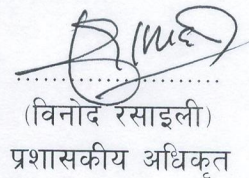 (विनोद रसाइली)
प्रशासकीय अधिकृत